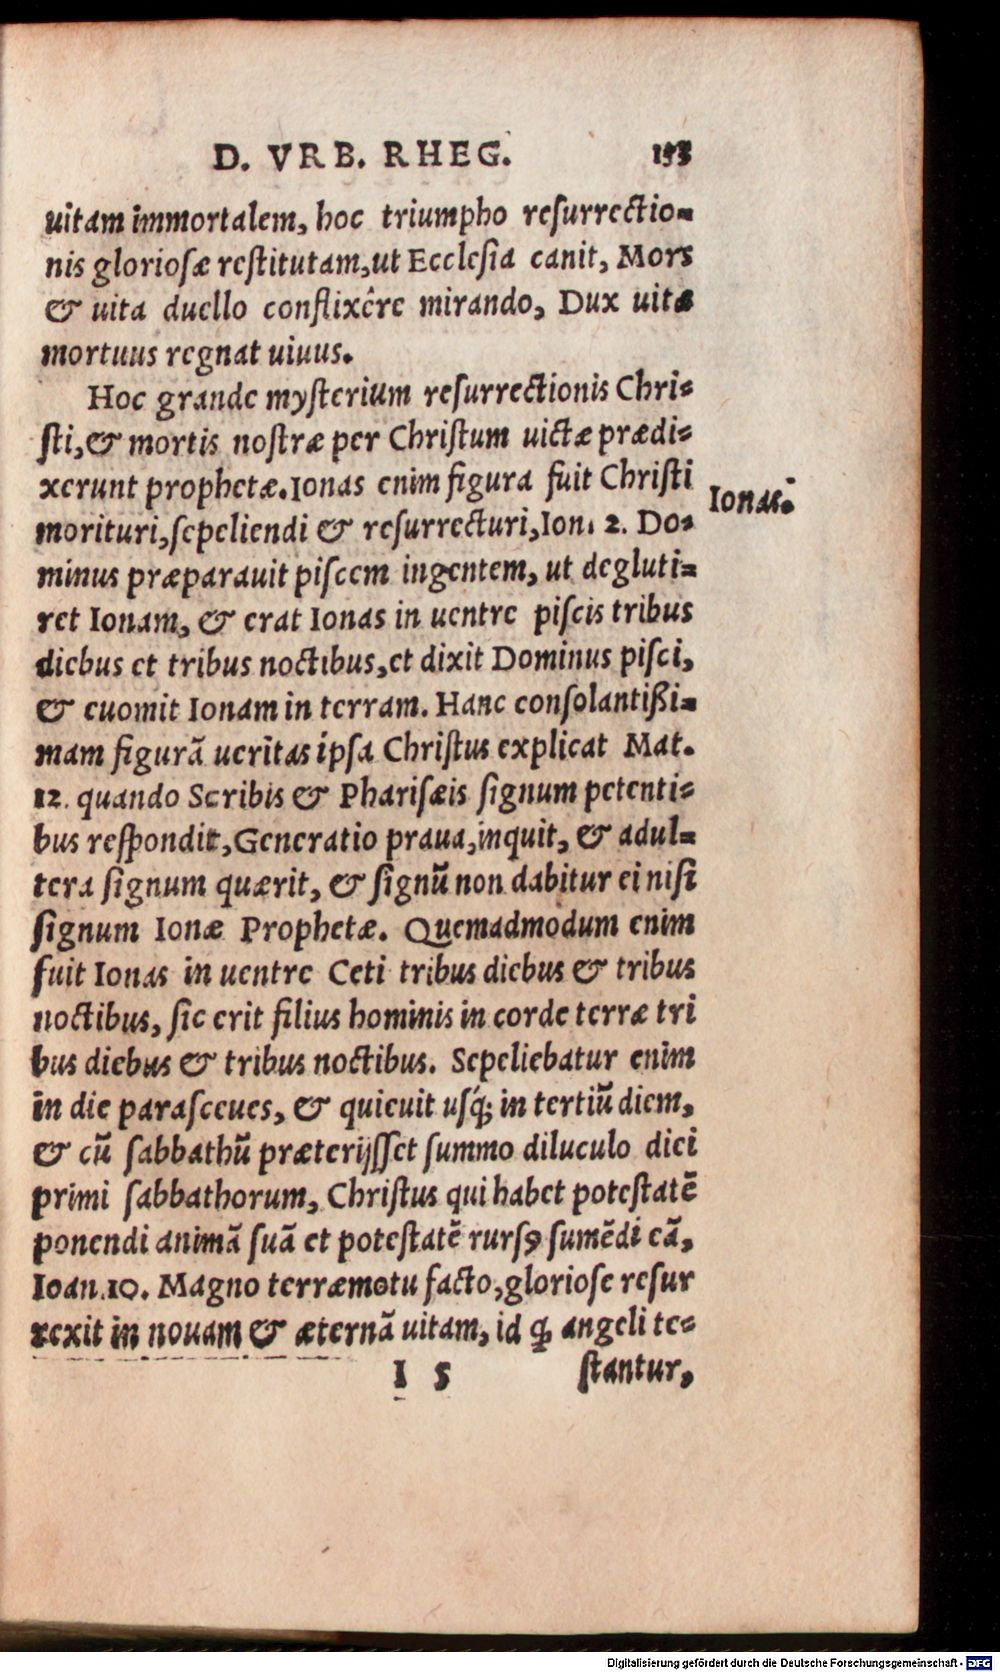 D. VRB. RHEG.
uitam immortalem, hoc triumpho resurrectio-
nis gloriosæ restitutam, ut Ecclesia canit, Mors
& uita duello conflixêre mirando, Dux uitæ
mortuus regnat uiuus.
Hoc grande mysterium resurrectionis Chri-
sti, & mortis nostræ per Christum uictæ prædi-
xerunt prophetæ. Ionas enim figura fuit Christi
Ionas.
morituri, sepeliendi & resurrecturi, Ion. 2. Do-
minus præparauit piscem ingentem, ut degluti-
ret Ionam, & erat Ionas in uentre piscis tribus
diebus et tribus noctibus, et dixit Dominus pisci,
& euomit Ionam in terram. Hanc consolantißi-
mam figurã ueritas ipsa Christus explicat Mat.
12. quando Scribis & Pharisæis signum petenti-
bus respondit, Generatio praua, inquit, & adul-
tera signum quærit, & signũ non dabitur ei nisi
signum Ionæ Prophetæ. Quemadmodum enim
fuit Ionas in uentre Ceti tribus diebus & tribus
noctibus, sic erit filius hominis in corde terræ tri
bus diebus & tribus noctibus. Sepeliebatur enim
in die parasceues, & quieuit usq́; in tertiũ diem,
& cũ sabbathũ præterijsset summo diluculo diei
primi sabbathorum, Christus qui habet potestatẽ
ponendi animã suã et potestatẽ rursꝰ sumẽdi eã,
Ioan. 10. Magno terræmotu facto, gloriose resur
rexit in nouam & æternã uitam, id ꝙ angeli te-
I 5 stantur,
Digitalisierung gefördert durch die Deutsche Forschungsgemeinschaft - DFG